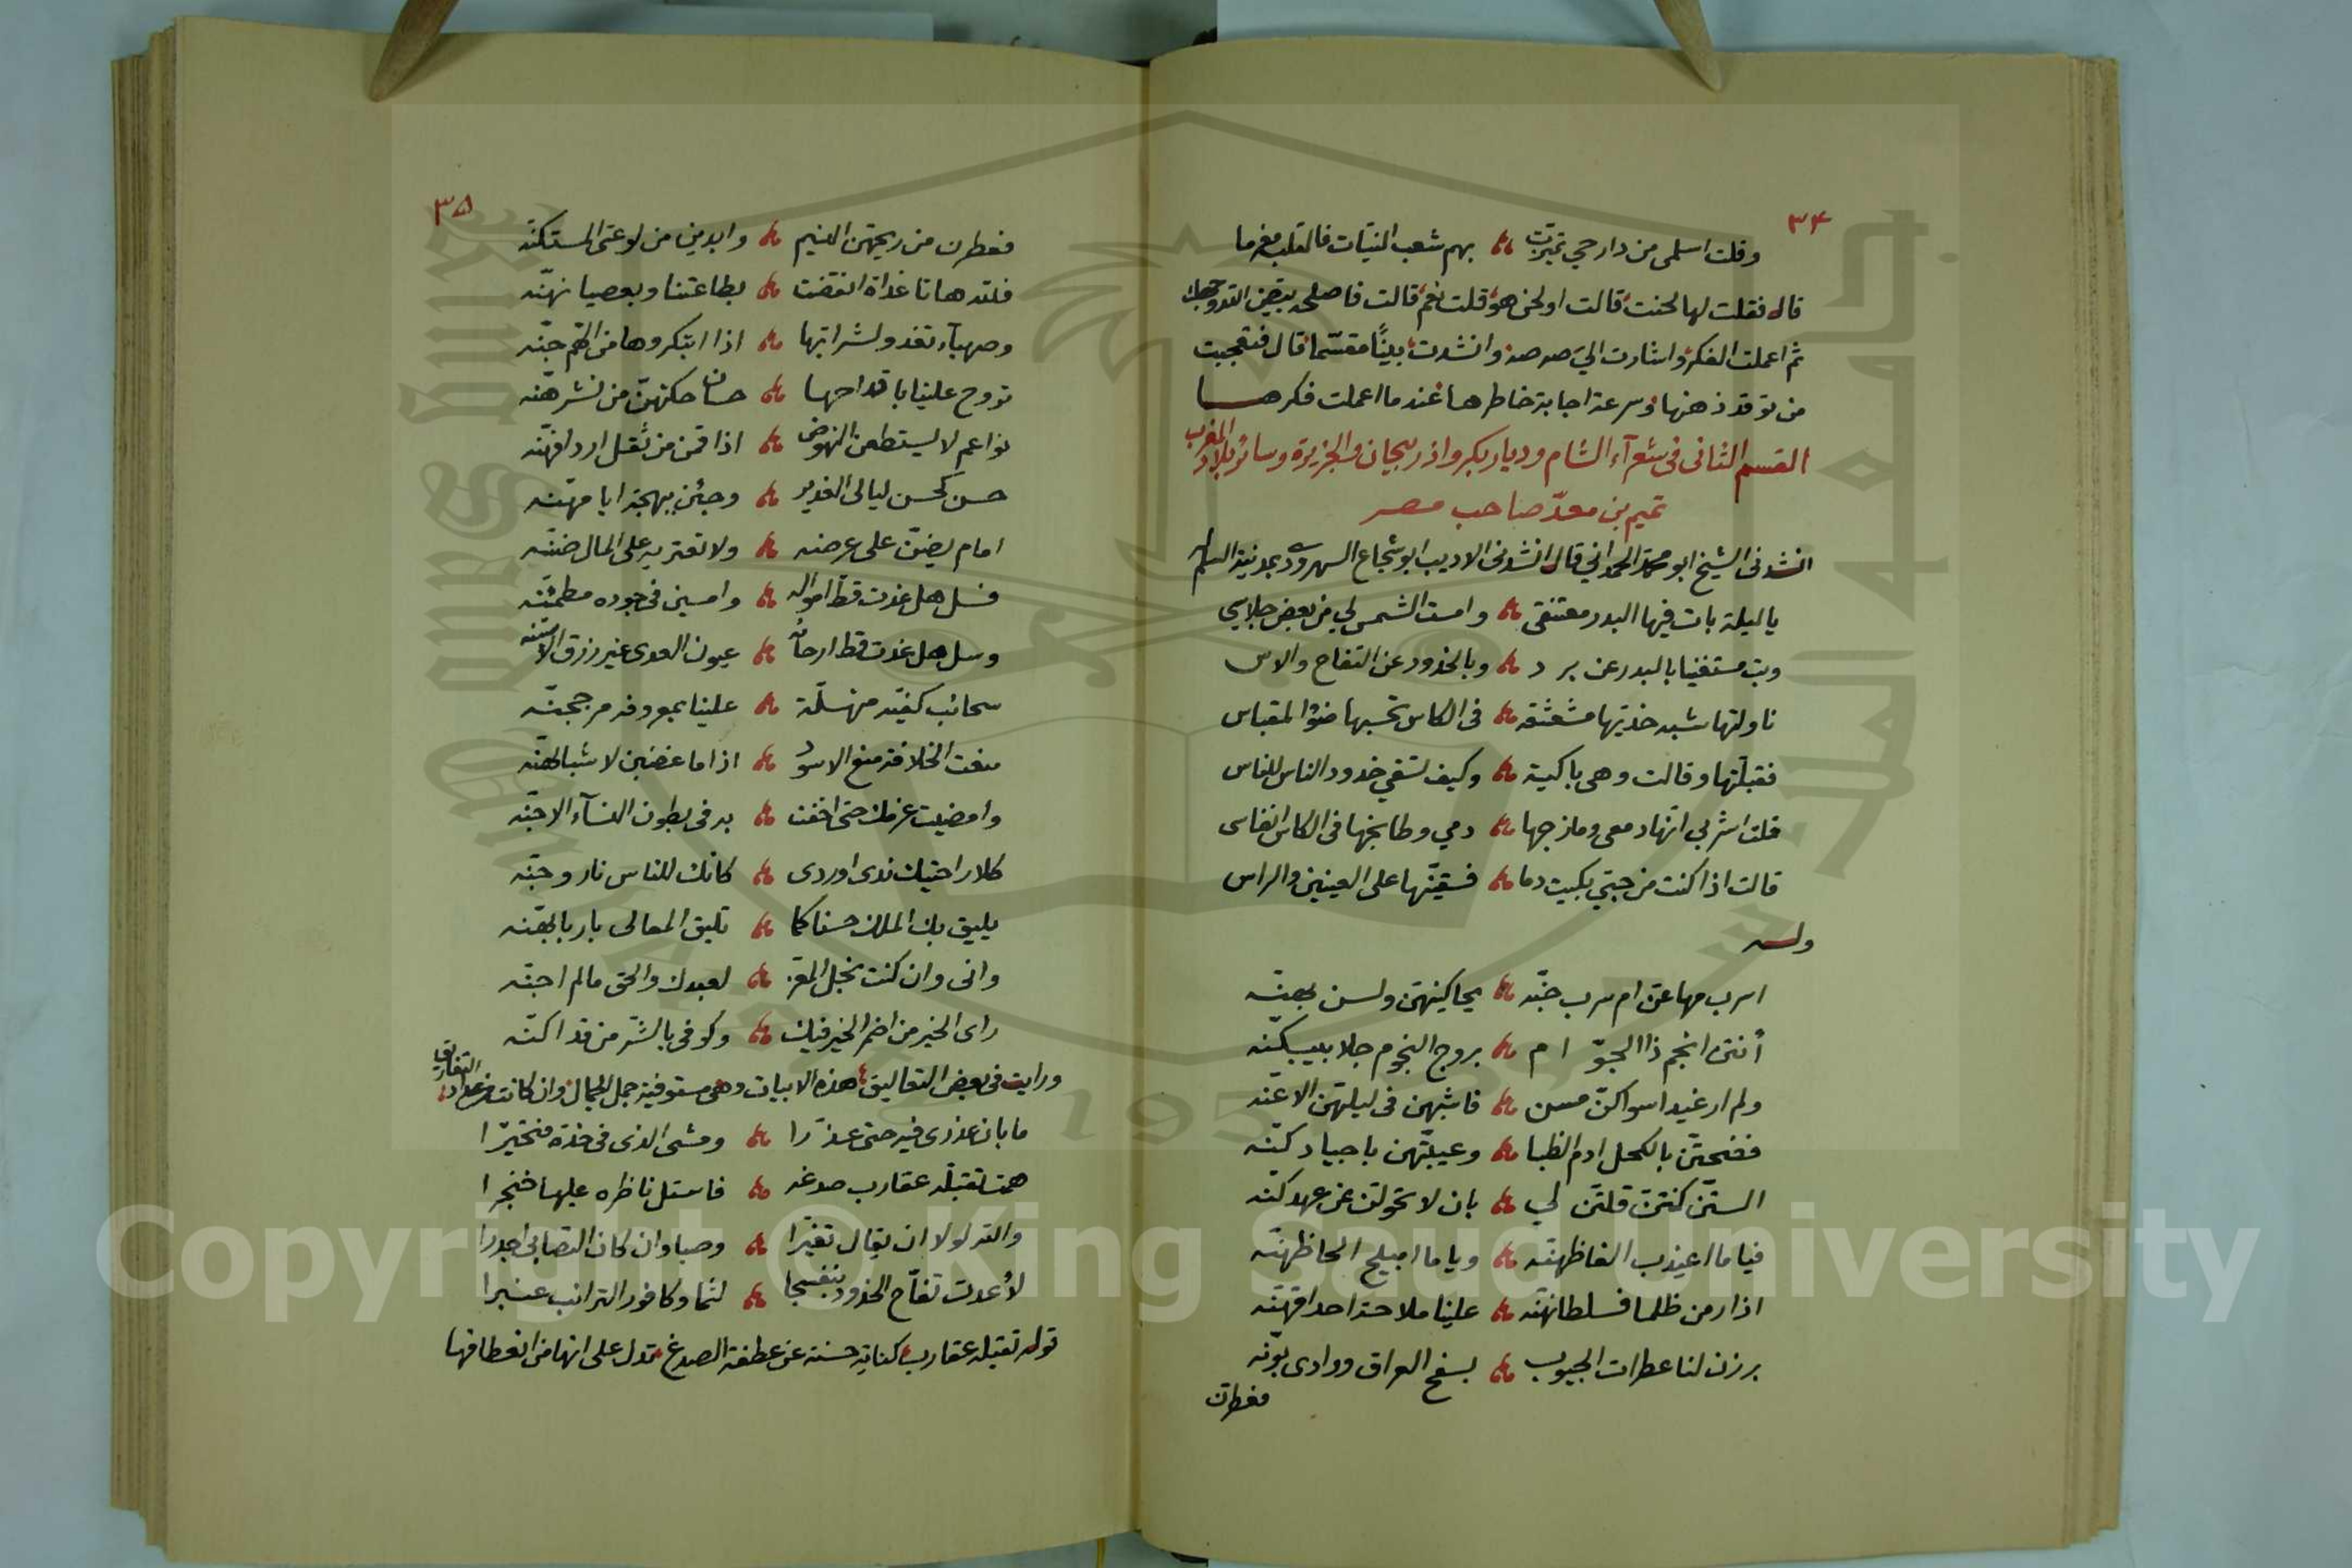 ٣٤
وقلت اسلمى من دار حي تميزت ؞ بهم شعب النيات فالقلب مغرما
قال فقلت لها لحنت قالت اولحن هو قلت نعم قالت فاصلحه بتبيض القد وجهك
ثم اعملت الفكر واشارت الي صه صه وانشدت بيتًا مقسّما قال فتعجبت
من توقد ذهنها وسرعة اجابة خاطرها عند ما اعملت فكرها
القسم الثانى فى شعرآء الشام وديار بكر واذربيجان والجزيرة وسائر بلاد المغرب
تميم بن معدّ صاحب مصر
انشدنى الشيخ ابو محمد الحمدانى قال انشدنى الاديب ابو شجاع السهروردى بمدينة السلام
يا ليلة بات فيها البدر معتنقى ؞ وامست الشمس لي من بعض جلاسي
وبت مستغنيا بالبدر عن برد ؞ وبالخدود عن التفاح والاس
ناولتها شبه خديها مشعشعة ؞ فى الكاس تحسبها ضوْ المقباس
فقبلتها وقالت وهى باكية ؞ وكيف تسقي خدود الناس للناس
قلت اشربي انها دمعى ومازجها ؞ دمي وطابخها فى الكاس انفاسى
قالت اذا كنت من حبي بكيت دما ؞ فسقيّنها على العينين والراس
ولـه
اسرب مها عنّ ام سرب جنّه ؞ يحاكينهن ولسن بهنّه
أنتن انجم ذا الجوّ ام ؞ بروج النجوم جلابيبكنّه
ولم ار غيد اسواكن مسن ؞ فاشبهن فى ليلتهن الاعنّه
ففضحتن بالكحل ادم الظبا ؞ وعيبتهن باجيادكنّه
الستن كنتن قلتن لي ؞ بان لا تحولن عن عهدكنّه
فيا ما اعيذب الفاظهنّه ؞ ويا ما اميلح الحاظهنّه
اذا رمن ظلما فسلطانهنّه ؞ علينا ملاحة احداقهنّه
برزن لنا عطرات الجيوب ؞ بسفح العراق ووادى بونّه
فعطرن
٣٥
فعطرن من ريحهن النسيم ؞ وابدين من لوعتى المستكنّه
فلله هاتا غداة انقضت ؞ بطاعتنا وبعصيانهنّه
وصهبآء تغدو لشرابها ؞ اذا ابتكروها من الهم جنّه
تروح علينا باقداحها ؞ حسان حكتهنّ من نشرهنّه
نواعم لا يستطعن النهوض ؞ اذا قمن من ثقل اردافهنّه
حسن كحسن ليالى الغدير ؞ وجئن ببهجة ايامهنّه
امام يضنّ على عرضه ؞ ولا تعتريه على المال ضنّه
فسل هل غدت قط امواله ؞ وامسين فى جوده مطمئنّه
وسل هل غدت قط ارحاله ؞ عيون العدى غير زرق الاسنّه
سحائب كفيّه منهلّة ؞ علينا بمعروفه مرجحنّه
منعت الخلافة منع الاسود ؞ اذا ما غضبن لاشبالهنّه
وامضيت عزمك حتى اخفت ؞ به فى بطون النسآء الاجنّه
كلا راحتيك ندى اوردى ؞ كانك للناس نار وجنّه
يليق بك الملك حسنا كما ؞ تليق المعالى باربابهنّه
وانى وان كنت نجل المعز ؞ لعبدك والحق ما لم اجنّه
راى الخير من اضمر الخير فيك ؞ وكوفى بالشر من قد اكنّه
ورايت فى بعض التعاليق هذه الابيات وهى مستوفية جمل الجمال وان كانت من عداد التفاريق
ما بان عذرى فيه حتى عذرا ؞ ومشى الذى فى خده فتحيّرا
همت تقبله عقارب صدغه ؞ فاستل ناظره عليها خنجرا
والله لولا ان يقال تغيّرا ؞ وصبا وان كان التصابى اجدرا
لأعدت تفّاح الخدود بنفسجا ؞ لثما وكافور الترائب عنبرا
قوله تقبله عقارب كناية حسنة عن عطفة الصدغ تدل على انها من انعطافها